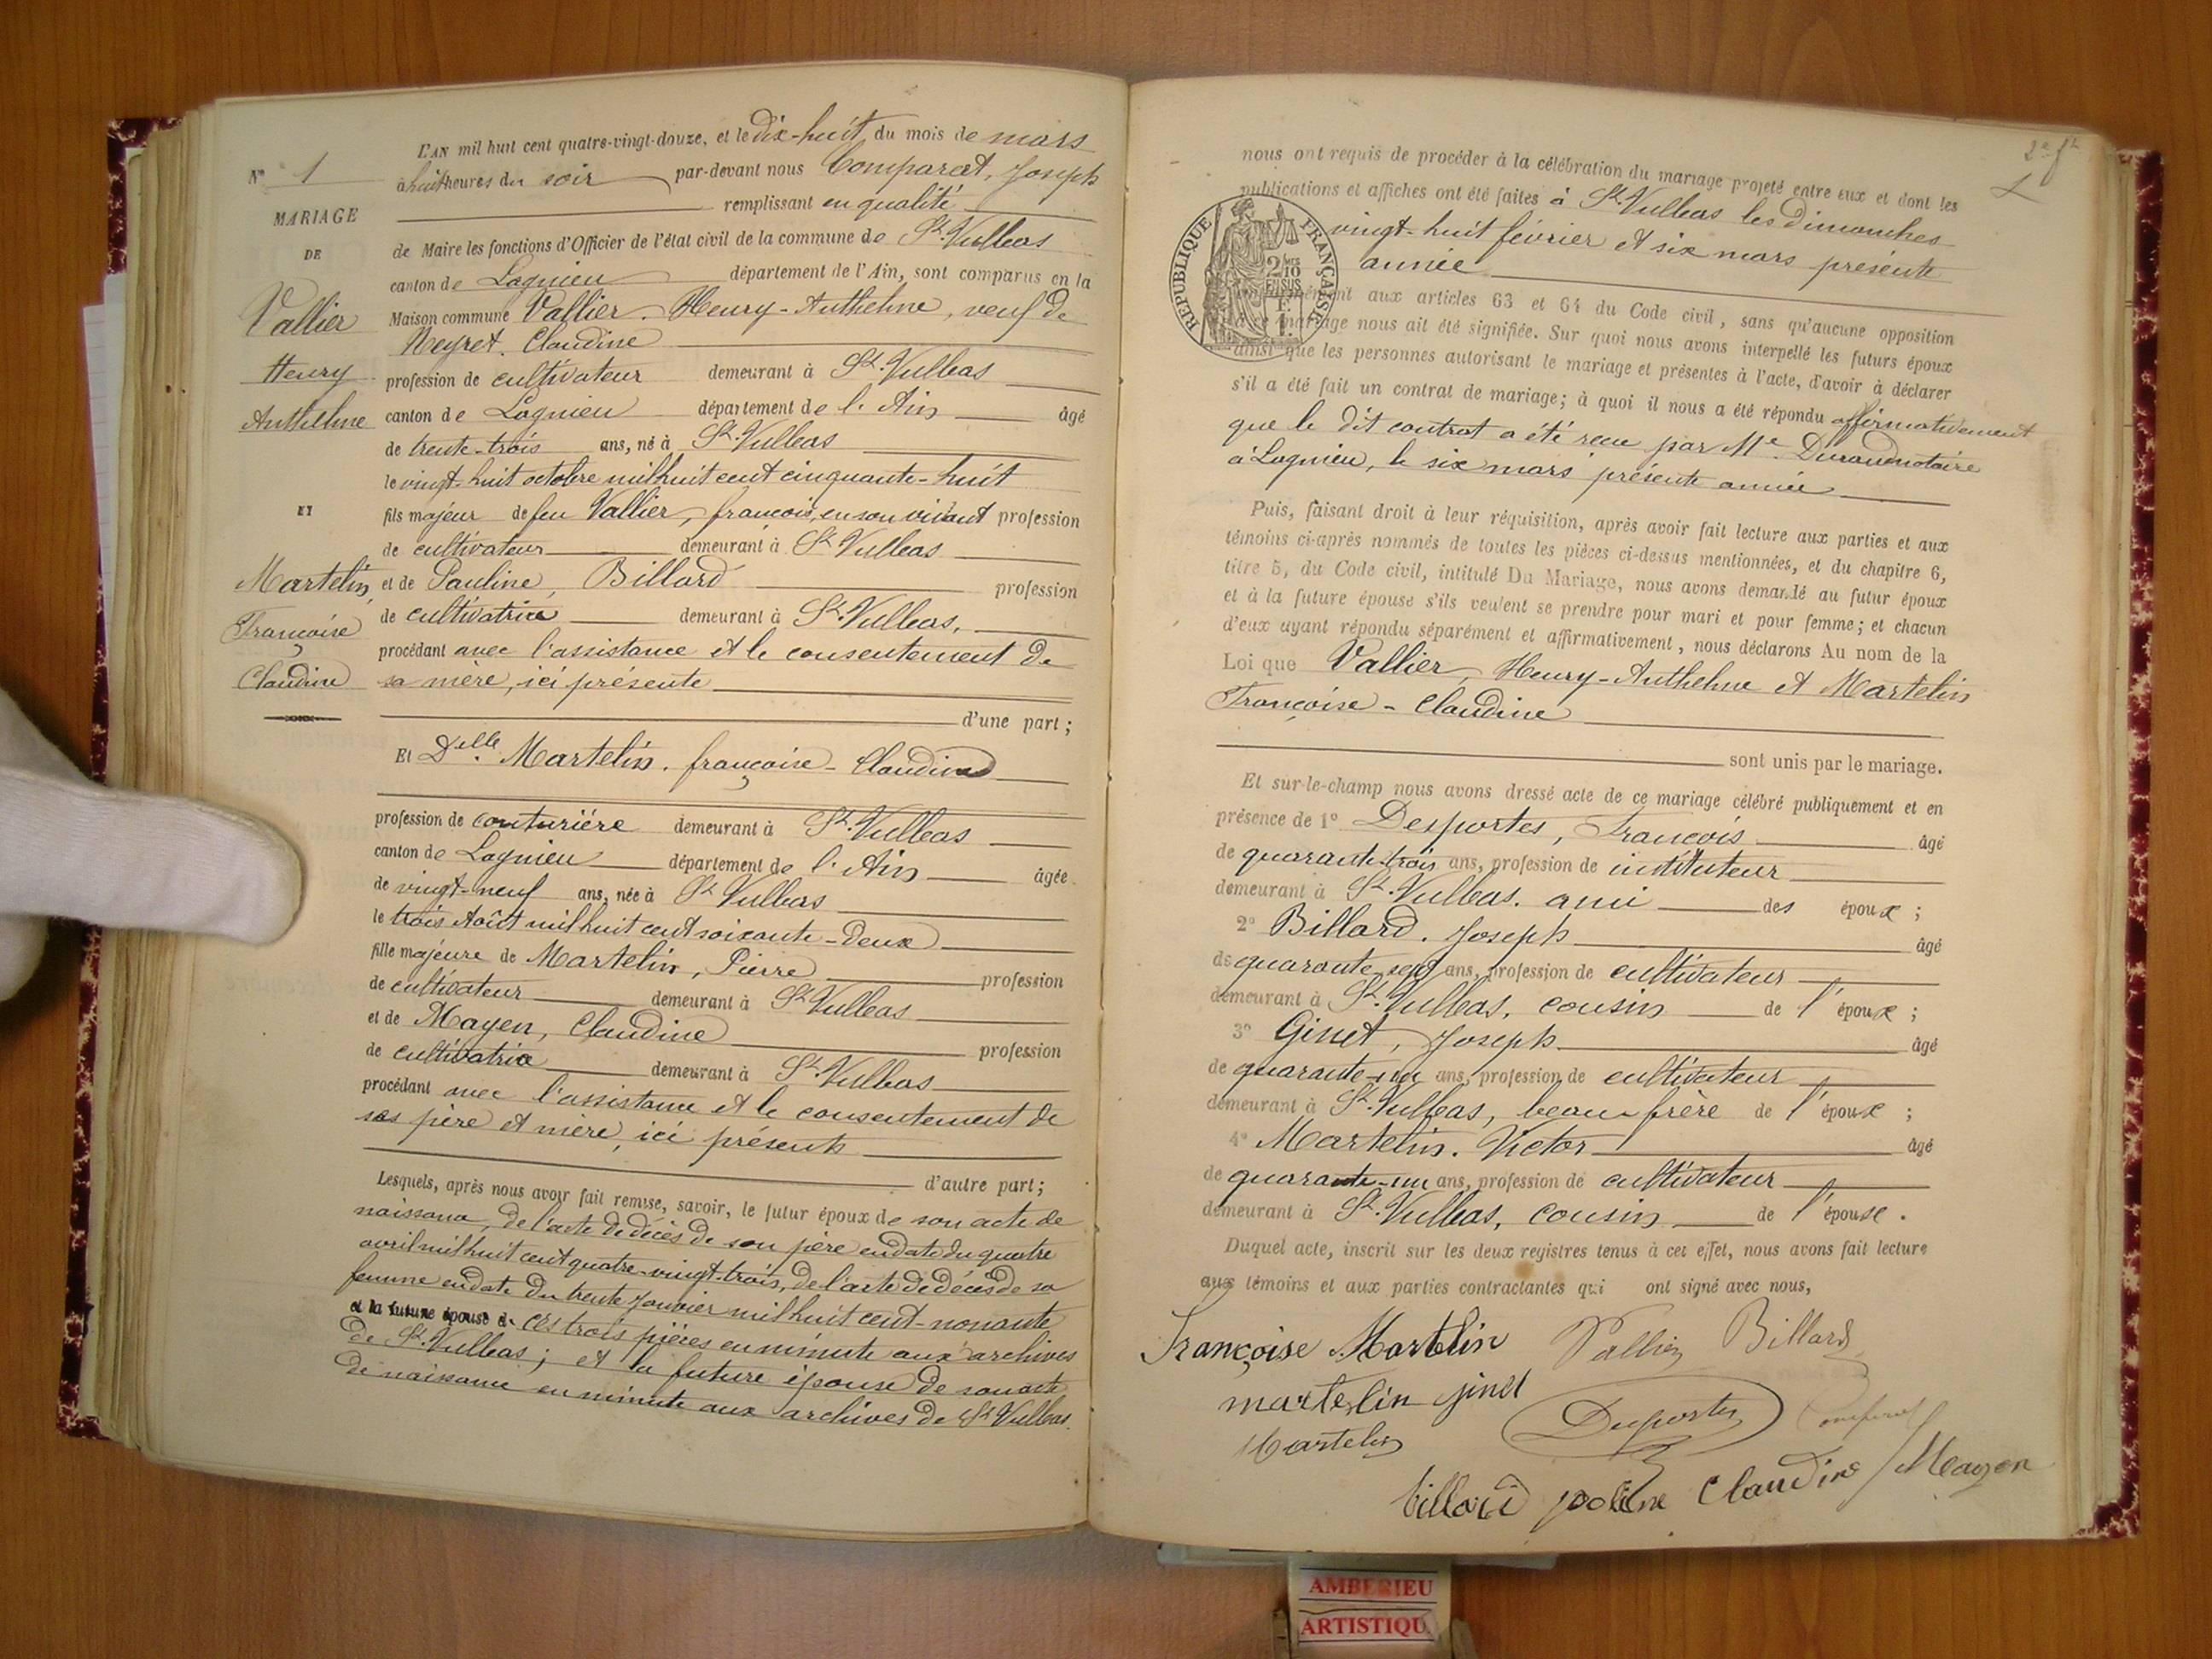 L'AN mil huit cent quatre-vingt-douze, et le dix-huit du mois de mars
N° 1
à huit heures du soir par-devant nous Comparat, Joseph
remplissant en qualité
MARIAGE
de Maire les fonctions d'Officier de l'état civil de la commune de St. Vulbas
DE
canton de Lagnieu département de l'Ain, sont comparus en la
Vallier
Maison commune Vallier. Henry-Anthelme, veuf de
Neyret. Claudine
Henry
profession de cultivateur demeurant à St. Vulbas
Anthelme
canton de Lagnieu département de l'Ain âgé
de trente-trois ans, né à St. Vulbas
le vingt-huit octobre mil huit cent cinquante-huit
ET
fils majeur de feu Vallier, françois, en son vivant profession
de cultivateur demeurant à St. Vulbas
Martelin
et de Pauline, Billard profession
Françoise
de cultivatrice demeurant à St. Vulbas,
Claudine
procédant avec l'assistance et le consentement de
sa mère, ici présente
d'une part;
Et Delle. Martelin. françoise-Claudine
profession de couturière demeurant à St. Vulbas
canton de Lagnieu département de l'Ain âgée
de vingt-neuf ans, née à St. Vulbas
le trois Août mil huit cent soixante-deux
fille majeure de Martelin, Pierre profession
de cultivateur demeurant à St. Vulbas
et de Mayen, Claudine profession
de cultivatrice demeurant à St. Vulbas
procédant avec l'assistance et le consentement de
ses père et mère, ici présents
d'autre part;
Lesquels, après nous avoir fait remise, savoir, le futur époux de son acte de
naissance, de l'acte de décès de son père en date du quatre
avril mil huit cent quatre-vingt-trois, de l'acte de décès de sa
femme en date du trente Janvier mil huit cent-nonante
et la future épouse de ces trois pièces en minute aux archives
de St. Vulbas; et la future épouse de son acte
de naissance en minute aux archives de St. Vulbas.
nous ont requis de procéder à la célébration du mariage projeté entre eux et dont les
publications et affiches ont été faites à St. Vulbas les Dimanches
vingt-huit février et six mars présente
année
RÉPUBLIQUE FRANÇAISE
2 MES
10
EN SUS
conformément aux articles 63 et 64 du Code civil, sans qu'aucune opposition
mariage nous ait été signifiée. Sur quoi nous avons interpellé les futurs époux
ainsi que les personnes autorisant le mariage et présentes à l'acte, d'avoir à déclarer
s'il a été fait un contrat de mariage; à quoi il nous a été répondu affirmativement
que le dit contrat a été recu par Me. Durand notaire
à Lagnieu, le six mars présente année
Puis, faisant droit à leur réquisition, après avoir fait lecture aux parties et aux
témoins ci-après nommés de toutes les pièces ci-dessus mentionnées, et du chapitre 6,
titre 5, du Code civil, intitulé Du Mariage, nous avons demandé au futur époux
et à la future épouse s'ils veulent se prendre pour mari et pour femme; et chacun
d'eux ayant répondu séparément et affirmativement, nous déclarons Au nom de la
Loi que Vallier, Henry-Anthelme et Martelin
Françoise-Claudine
sont unis par le mariage.
Et sur-le-champ nous avons dressé acte de ce mariage célébré publiquement et en
présence de 1° Desportes, François âgé
de quarante-trois ans, profession de instituteur
demeurant à St. Vulbas. ami des époux;
2° Billard. Joseph âgé
de quarante-sept ans, profession de cultivateur
demeurant à St. Vulbas, cousin de l'époux;
3° Ginet, Joseph âgé
de quarante-un ans, profession de cultivateur
demeurant à St. Vulbas, beau-frère de l'époux;
4° Martelin. Victor âgé
de quarante-un ans, profession de cultivateur
demeurant à St. Vulbas, cousin de l'épouse.
Duquel acte, inscrit sur les deux registres tenus à cet effet, nous avons fait lecture
aux témoins et aux parties contractantes qui ont signé avec nous,
Françoise Martelin Vallier Billard
martelin ginet
Desportes Comparat
Martelin
billard poline Claudine Mayen
AMBERIEU
ARTISTIQU